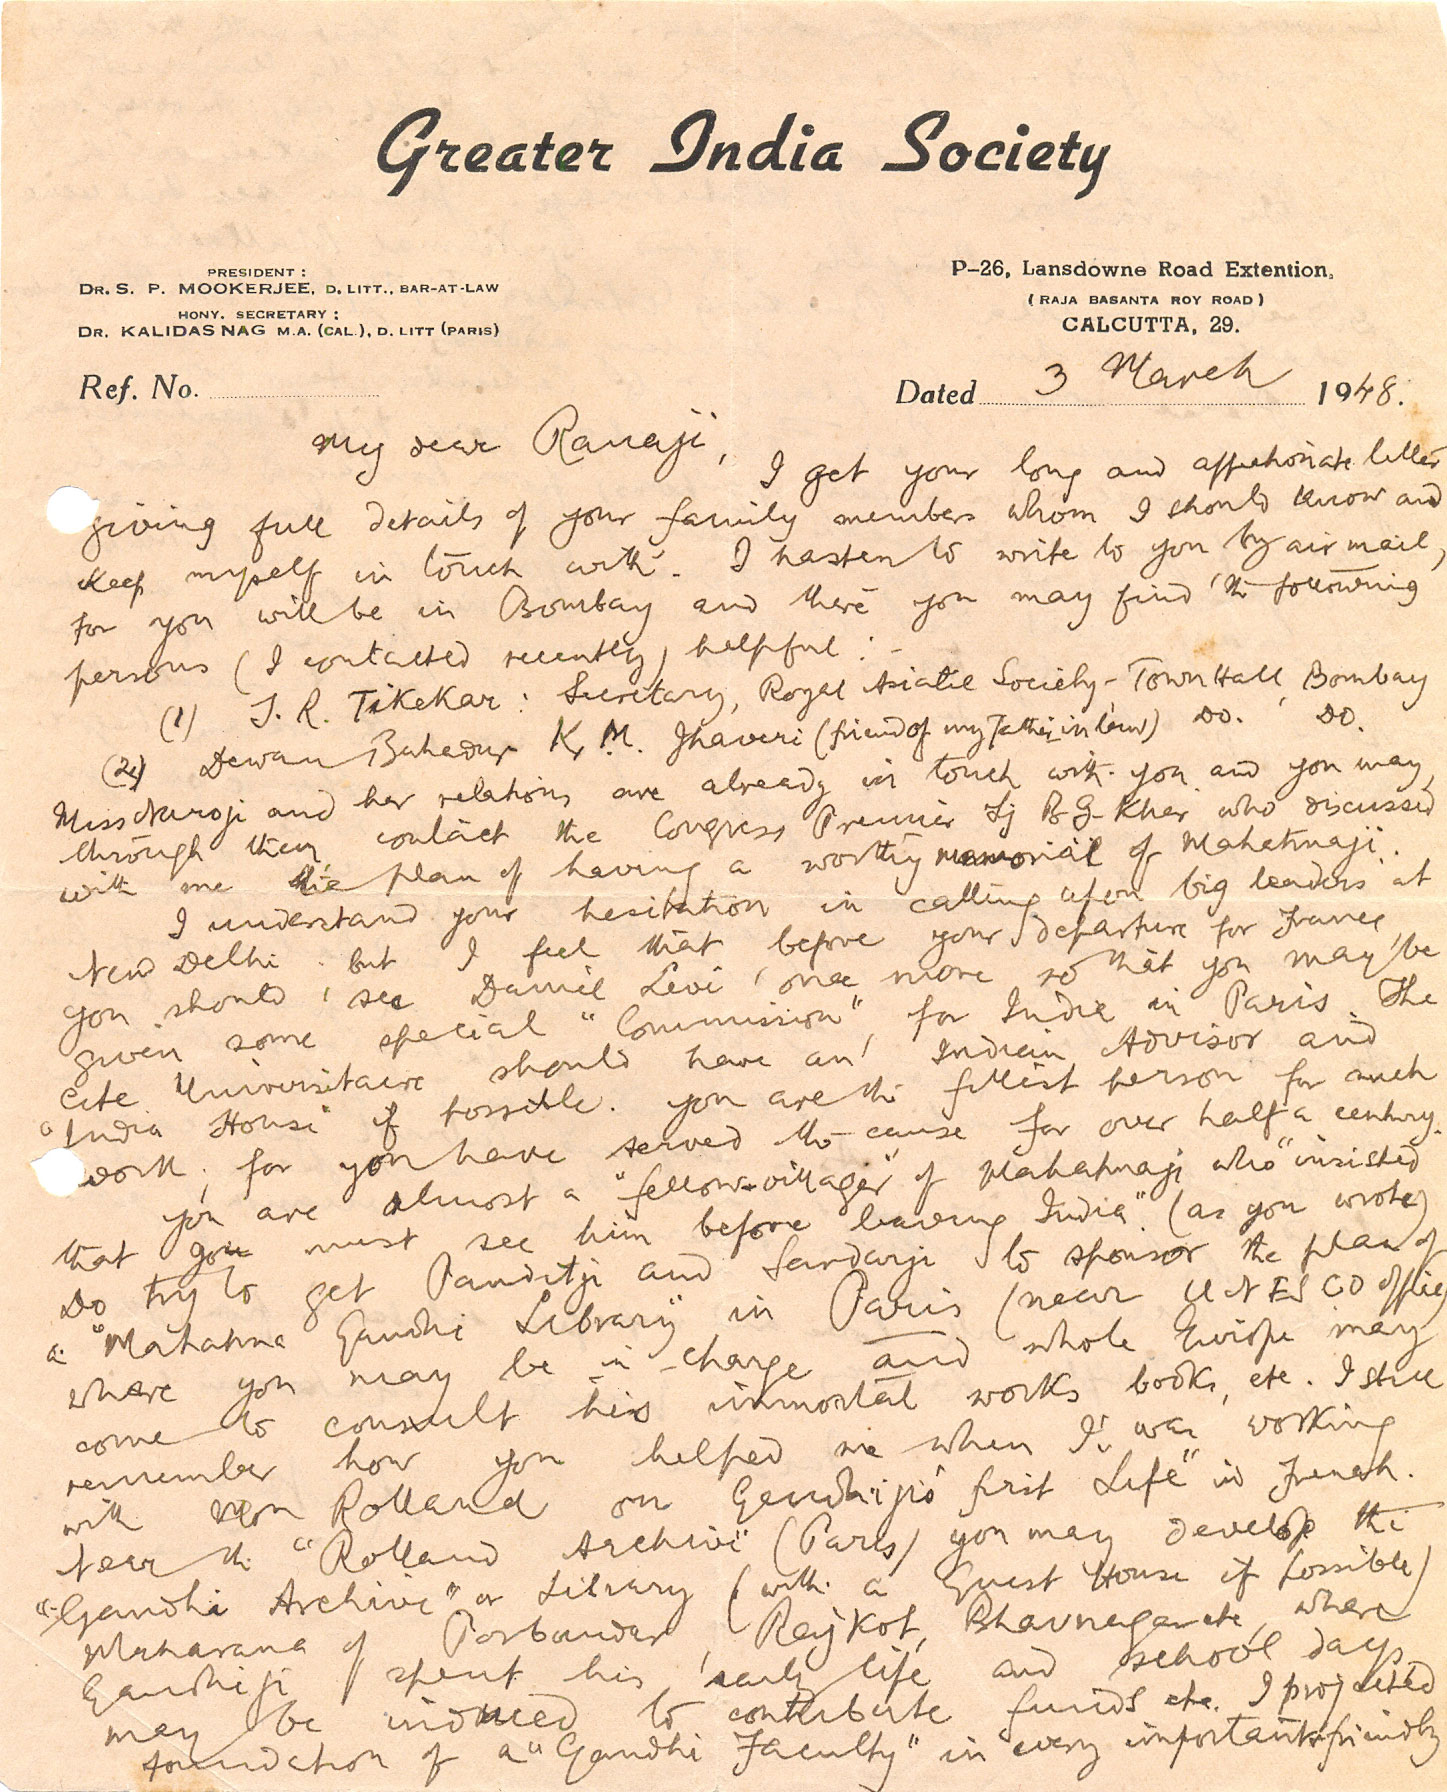 Greater India Society
PRESIDENT :
DR. S. P. MOOKERJEE, D. LITT., BAR-AT-LAW
HONY. SECRETARY :
DR. KALIDAS NAG M.A. (CAL.), D. LITT (PARIS)
P-26, Lansdowne Road Extention,
(RAJA BASANTA ROY ROAD)
CALCUTTA, 29.
Ref. No.
Dated 3 March 1948.
My dear Ranaji,
I get your long and affectionate letter
giving full details of your family members whom I should know and
keep myself in touch with. I hasten to write to you by air mail,
for you will be in Bombay and there you may find the following
persons (I contacted recently) helpful :-
(1) T. R. Tikekar : Secretary, Royal Asiatic Society - Town Hall, Bombay
(2) Dewan Bahadur K. M. Jhaveri (friend of my Father in law) Do. Do.
Miss Naroji and her relations are already in touch with you and you may,
through them contact the Congress Premier Sj B. G. Kher who discussed
with me the plan of having a worthy memorial of Mahatmaji.
I understand your hesitation in calling upon big leaders at
New Delhi. but I feel that before your departure for France,
you should see Daniel Levi once more so that you may be
given some special "Commission" for India in Paris. The
Cite Universitaire should have an Indian Advisor and
"India House" if possible. you are the fittest person for such
work; for you have served the cause for over half a century.
you are almost a "fellow-villager" of Mahatmaji who "insisted
that you must see him before leaving India". (as you wrote)
Do try to get Panditji and Sardarji to sponsor the plan of
a "Mahatma Gandhi Library" in Paris (near UNESCO office)
where you may be in-charge and whole Europe may
come to consult his immortal works books, etc. I still
remember how you helped me when I was working
with Rolland on Gandhiji's first Life" in French.
Near the "Rolland Archive" (Paris) you may develop the
"Gandhi Archive" or Library (with a Guest House if possible)
Maharana of Porbandar, Rajkot, Bhavnagar etc, where
Gandhiji spent his early life and school days,
may be induced to contribute funds etc. I projected
foundation of a "Gandhi Faculty" in every important friendly